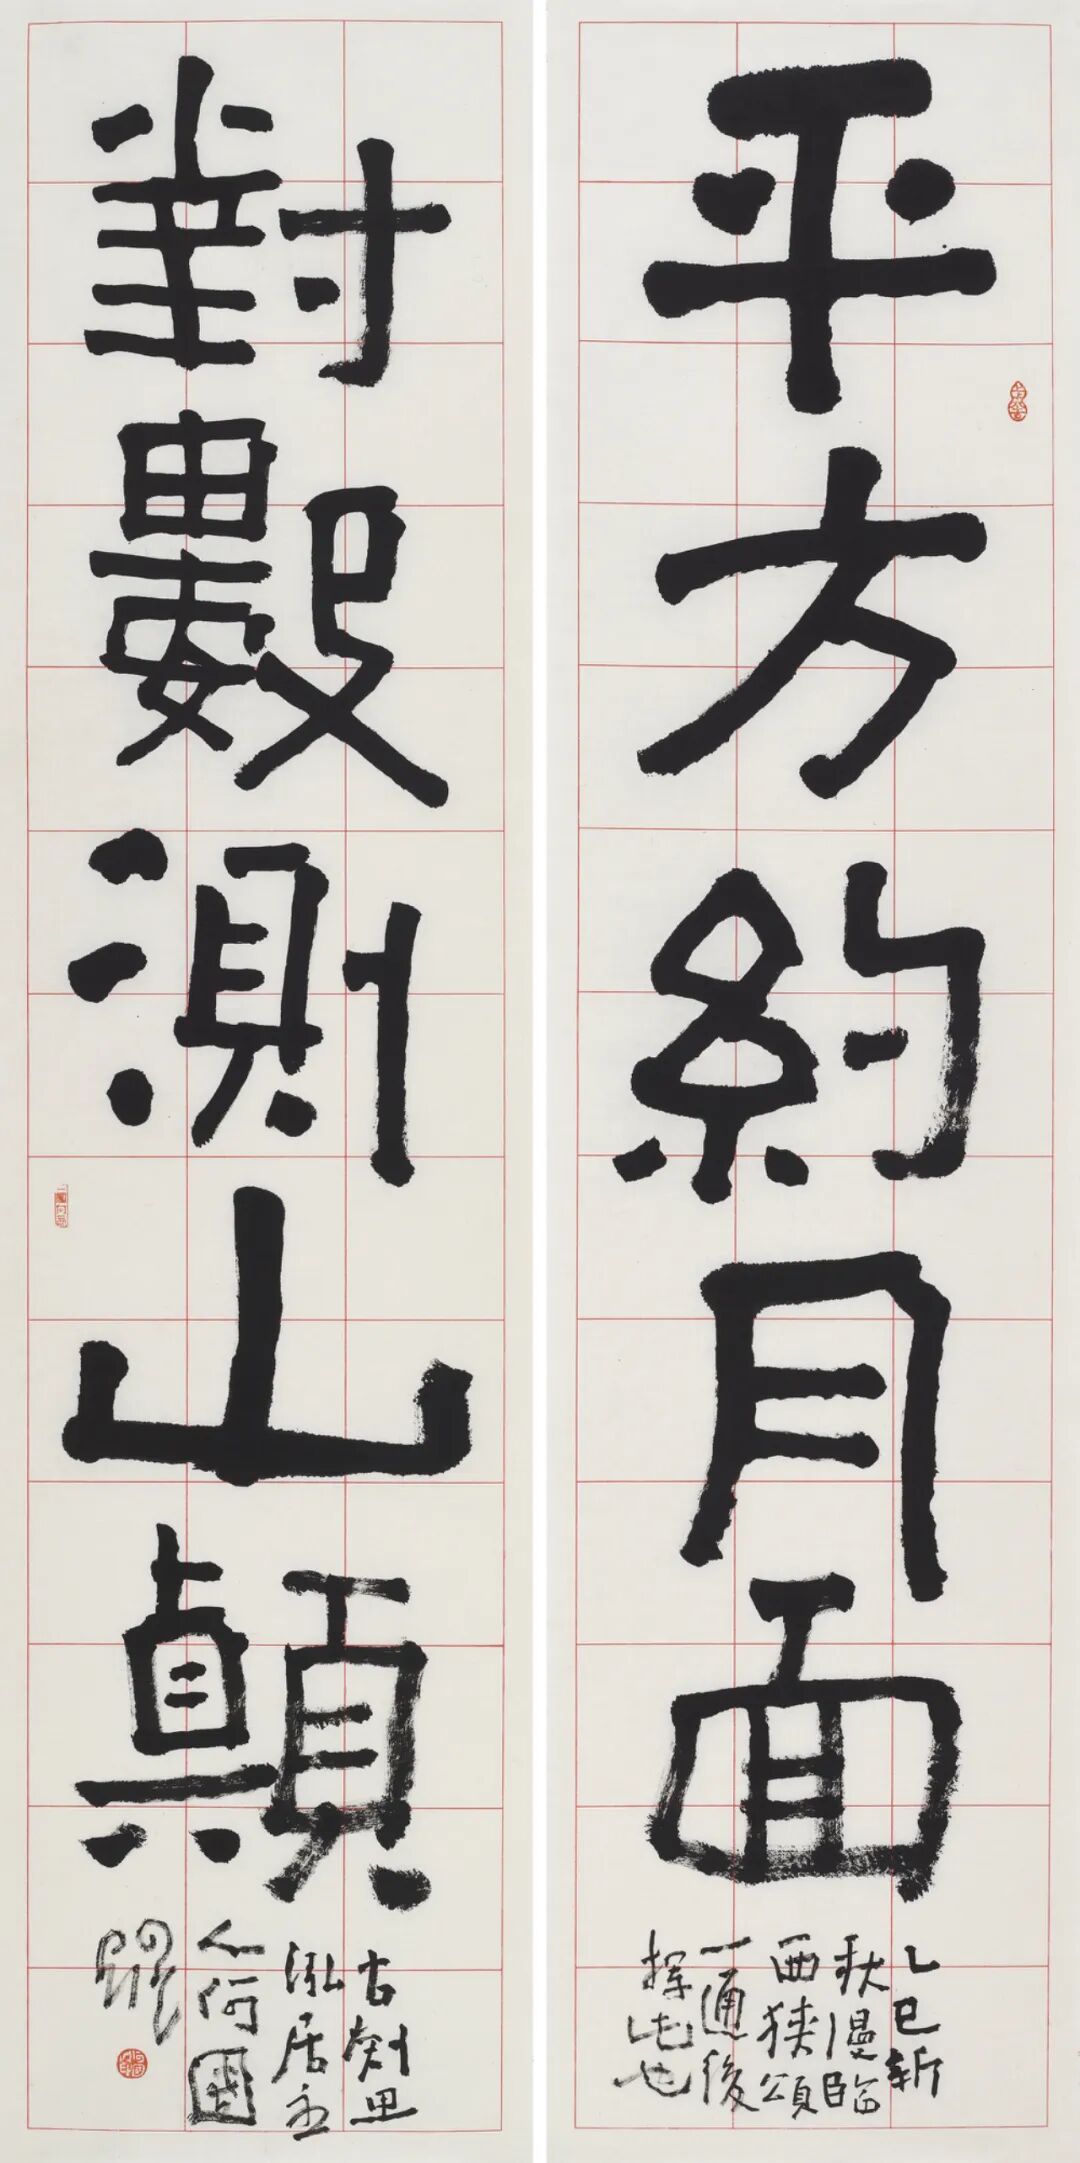 平方約月面
乙巳新
秋漫臨
西狹頌
一通後
揮此也
對數測山顛
古剡思
泓居主
人何國